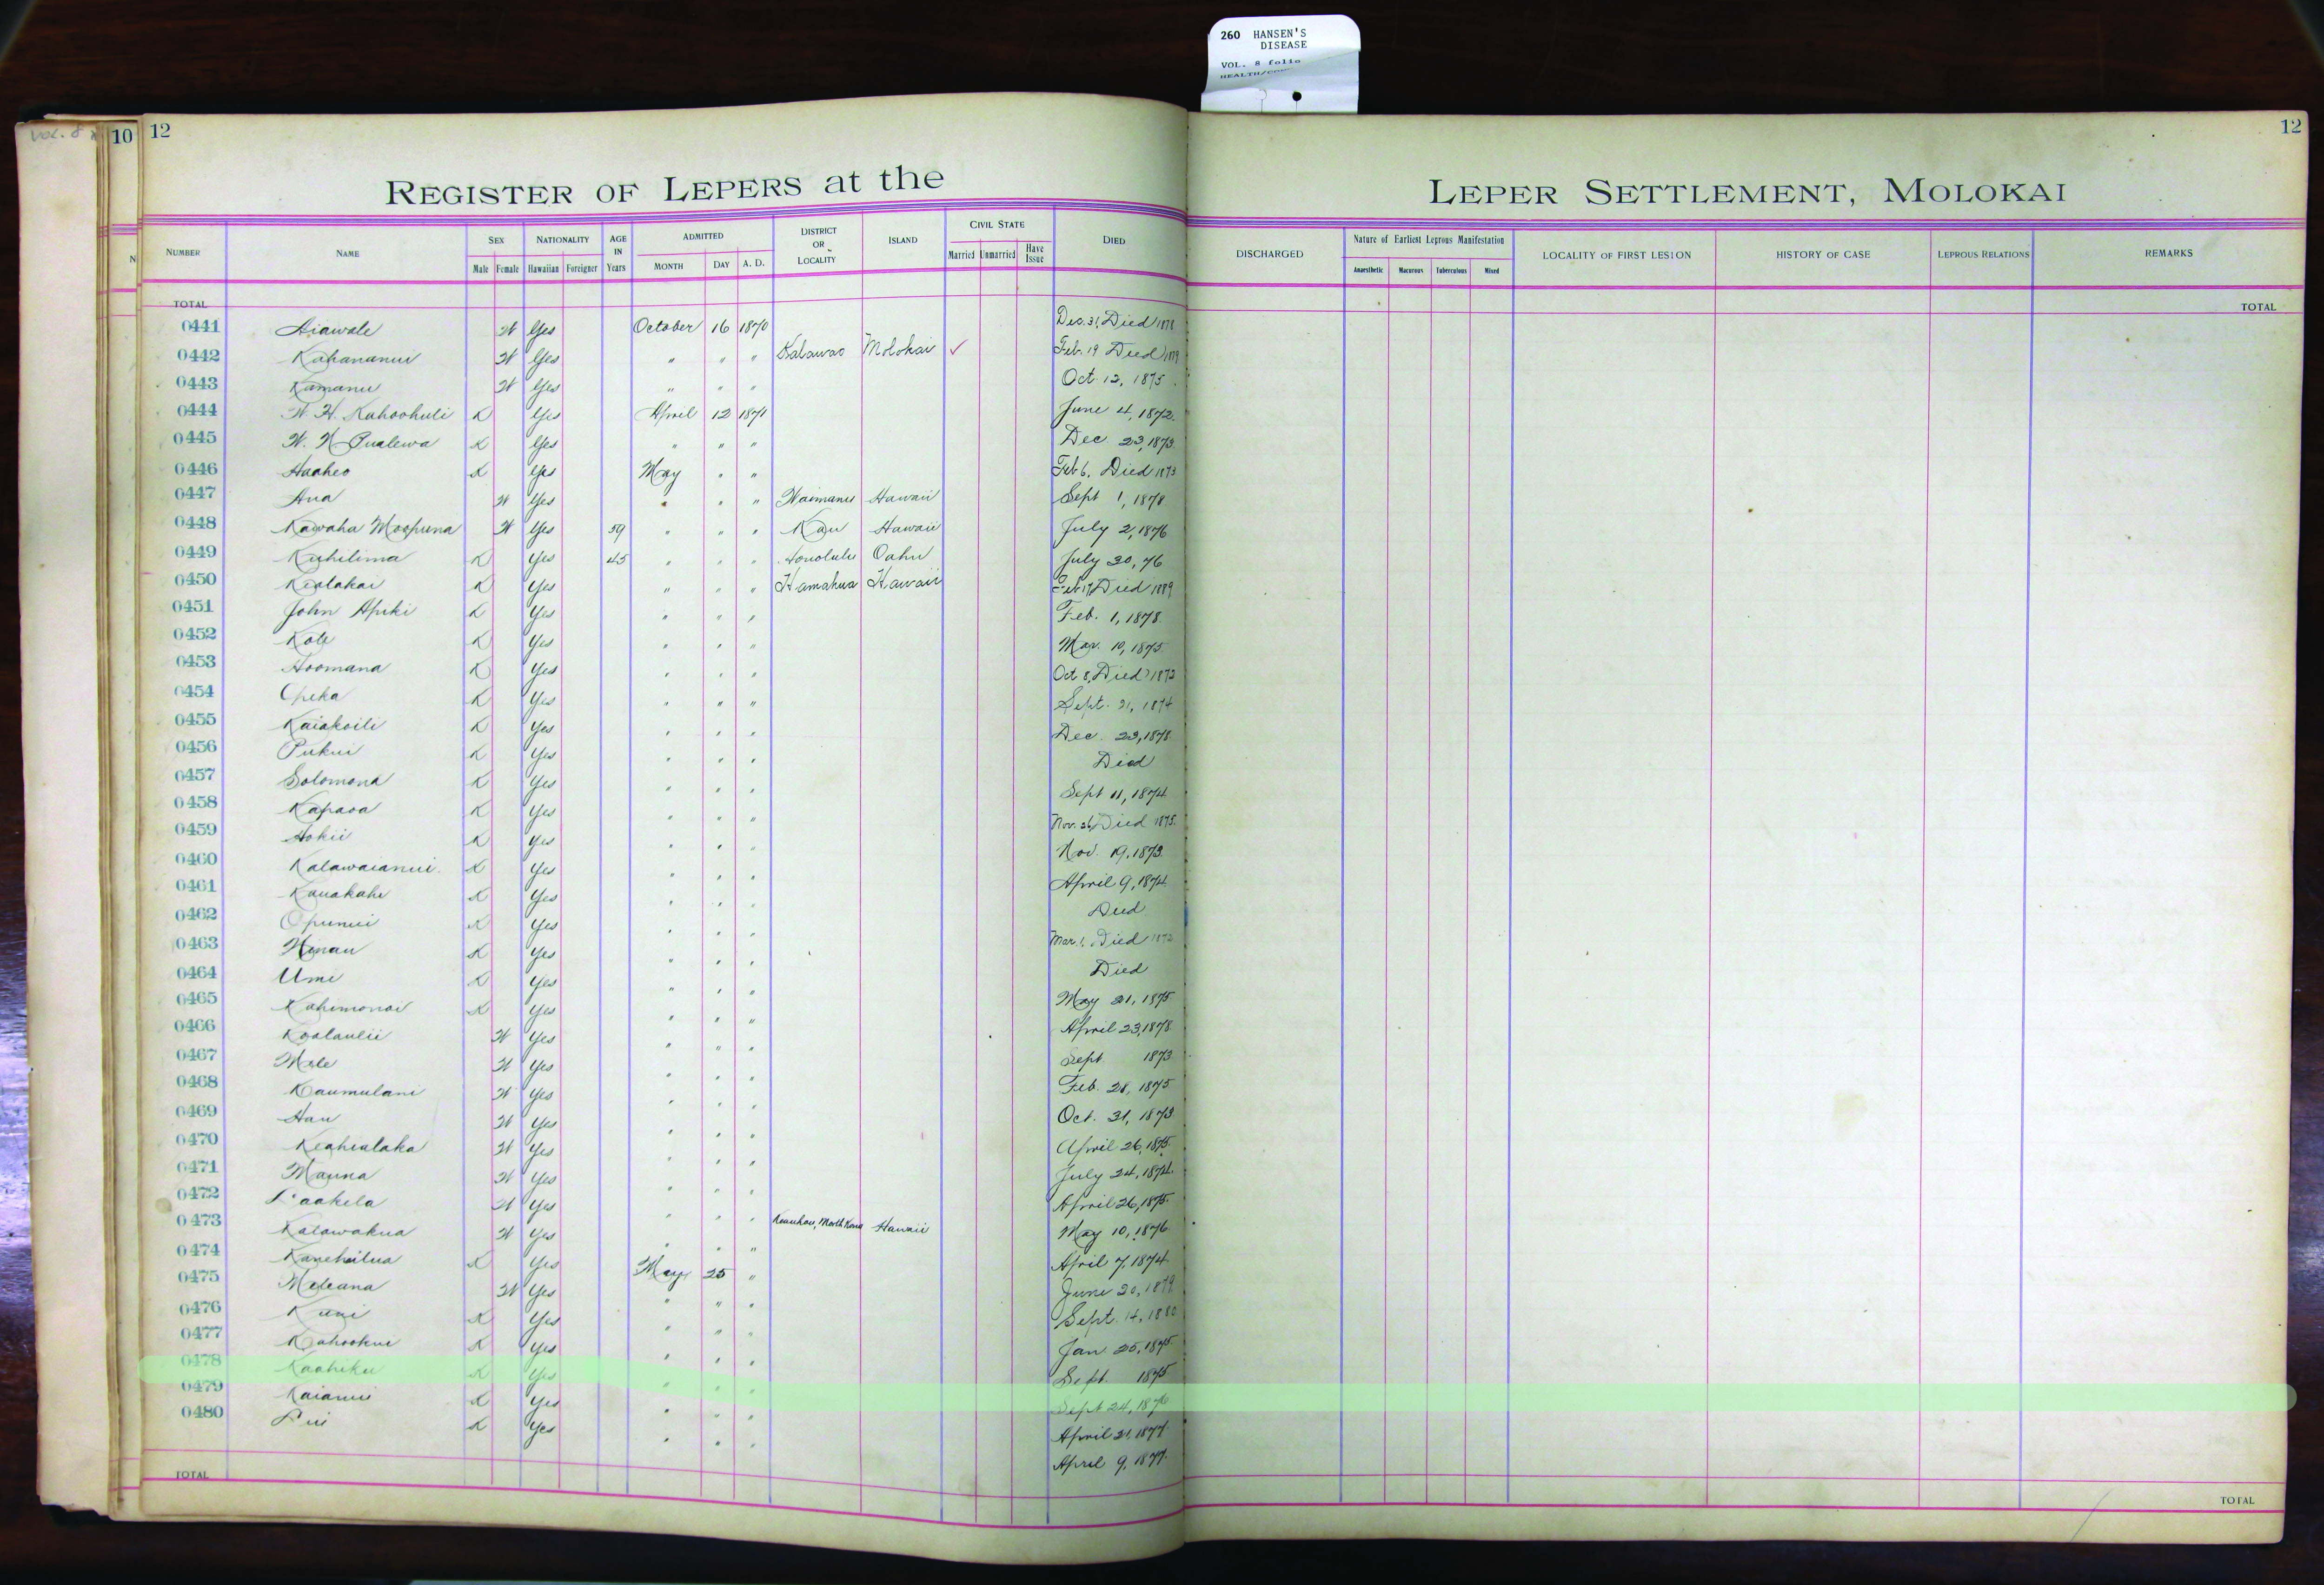 260 HANSEN'S
DISEASE
VOL. 8 folio
VOL. 8
10 12
12
REGISTER OF LEPERS at the LEPER SETTLEMENT, MOLOKAI
NUMBER NAME SEX NATIONALITY AGE IN Years ADMITTED DISTRICT OR LOCALITY ISLAND CIVIL STATE DIED DISCHARGED Nature of Earliest Leprous Manifestation LOCALITY OF FIRST LESION HISTORY OF CASE LEPROUS RELATIONS REMARKS
Male Female Hawaiian Foreigner MONTH DAY A. D. Married Unmarried Have Issue Anaesthetic Macurous Tuberculous Mixed
TOTAL TOTAL
0441 Aiawale W Yes October 16 1870 Dec. 31, Died 1878
0442 Kahananui W Yes " " " Kalawao Molokai ✓ Feb. 19 Died
0443 Kamanu W Yes " " " Oct. 12, 1875
0444 W. H. Kahoohuli K Yes April 12 1871 June 4, 1872
0445 W. N. Pualewa K Yes " " " Dec 23, 1873
0446 Haaheo K Yes May " " Feb 6, Died 1873
0447 Ana W Yes " " " Waimanu Hawaii Sept 1, 1878
0448 Kawaha Moopuna W Yes 59 " " " Kau Hawaii July 2, 1876
0449 Kuhilima K Yes 45 " " " Honolulu Oahu July 30, 76
0450 Kealakai K Yes " " " Hamakua Hawaii Feb 17, Died 1889
0451 John Apiki K Yes " " " Feb. 1, 1878
0452 Kole K Yes " " " Mar. 10, 1875
0453 Hoomana K Yes " " " Oct 8, Died 1873
0454 Opeka K Yes " " " Sept. 21, 1874
0455 Kaiakoili K Yes " " " Dec. 23, 1878
0456 Pukui K Yes " " " Died
0457 Solomona K Yes " " " Sept 11, 1874
0458 Kapaoa K Yes " " " Nov. 26, Died 1875
0459 Hokii K Yes " " " Nov. 19, 1873
0460 Kalawaianui K Yes " " " April 9, 1874
0461 Kauakahi K Yes " " " Died
0462 Opunui K Yes " " " Mar. 1, Died
0463 Hinau K Yes " " " Died
0464 Umi K Yes " " " May 21, 1875
0465 Kahimonoi K Yes " " " April 23, 1878
0466 Koolaulii W Yes " " " Sept 1873
0467 Mele W Yes " " " Feb. 28, 1875
0468 Kaumulani W Yes " " " Oct. 31, 1873
0469 Hau W Yes " " " April 26, 1875
0470 Keahialaka W Yes " " " July 24, 1874
0471 Mauna W Yes " " " April 26, 1875
0472 Laakela W Yes " " " Keauhou, North Kona Hawaii May 10, 1876
0473 Kalawakua W Yes " " " April 7, 1874
0474 Kanehailua K Yes May 25 " June 20, 1879
0475 Meleana W Yes " " " Sept. 14, 1880
0476 Kuni K Yes " " " Jan 25, 1875
0477 Kahookui K Yes " " " Sept 1875
0478 Kaahiku K Yes " " " Sept 24, 1876
0479 Kaianui K Yes " " " April 21, 1877
0480 Pui K Yes " " " April 9, 1877
TOTAL TOTAL